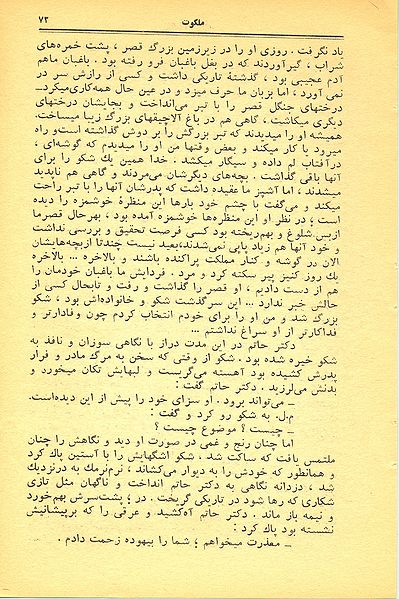 ملکوت
۷۳
یاد نگرفت . روزی او را در زیرزمین بزرگ قصر ، پشت خمره‌های
شراب ، گیر آوردند که در بغل باغبان فرو رفته بود . باغبان ماهم
آدم عجیبی بود ، گذشتهٔ تاریکی داشت و کسی از رازش سر در
نمی آورد ، اما بزبان ما حرف میزد و در عین حال همه‌کاری میکرد ــ
درختهای جنگل قصر را با تبر می‌انداخت و بجایشان درختهای
دیگری میکاشت ، گاهی هم در باغ آلاچیقهای بزرگ زیبا میساخت.
همیشه او را میدیدند که تبر بزرگش را بر دوش گذاشته است و راه
میرود یا کار میکند و بعض وقتها من او را میدیدم که گوشه‌ای ،
درآفتاب لم داده و سیگار میکشد . خدا همین یك شکو را برای
آنها باقی گذاشت . بچه‌های دیگرشان می‌مردند و گاهی هم ناپدید
میشدند ، اما آشپز ما عقیده داشت که پدرشان آنها را با تبر راحت
میکند و می‌گفت با چشم خود بارها این منظرهٔ خوشمزه را دیده
است ؛ در نظر او این منظره‌ها خوشمزه آمده بود ، بهرحال قصرما
ازبس شلوغ و بهم‌ریخته بود کسی فرصت تحقیق و بررسی نداشت
و خود آنها هم زیاد پاپی نمی‌شدند، بعید نیست چندتا ازبچه‌هایشان
الان در گوشه و کنار مملکت پراکنده باشند و بالاخره ... بالاخره
یك روز کنیز پیر سکته کرد و مرد . فردایش ما باغبان خودمان را
هم از دست دادیم ، او قصر را گذاشت و رفت و تابحال کسی از
حالش خبر ندارد ... این سرگذشت شکو و خانواده‌اش بود ، شکو
بزرگ شد و من او را برای خودم انتخاب کردم چون وفادارتر و
فداکارتر از او سراغ نداشتم ...
دکتر حاتم در این مدت دراز با نگاهی سوزان و نافذ به
شکو خیره شده بود . شکو از وقتی که سخن به مرگ مادر و فرار
پدرش کشیده بود آهسته می‌گریست و لبهایش تکان میخورد و
بدنش می‌لرزید . دکتر حاتم گفت :
ــ می‌تواند برود . او سزای خود را پیش از این دیده‌است.
م.ل. به شکو رو کرد و گفت :
ــ چیست ؟ موضوع چیست ؟
اما چنان رنج و غمی در صورت او دید و نگاهش را چنان
ملتمس یافت که ساکت شد . شکو اشگهایش را با آستین پاك کرد
و همانطور که خودش را به دیوار می‌کشاند ، نرم‌نرمك به درنزدیك
شد ، دزدانه نگاهی به دکتر حاتم انداخت و ناگهان مثل تازی
شکاری که رها شود در تاریکی گریخت . در ؛ پشت‌سرش بهم‌خورد
و نیمه باز ماند . دکتر حاتم آه‌کشید و عرقی را که برپیشانیش
نشسته بود پاك کرد :
ــ معذرت میخواهم ؛ شما را بیهوده زحمت دادم .